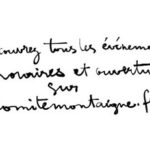 ouvrez tous les événeme
horaires et ouvertu
sur
omitemontaigne.f